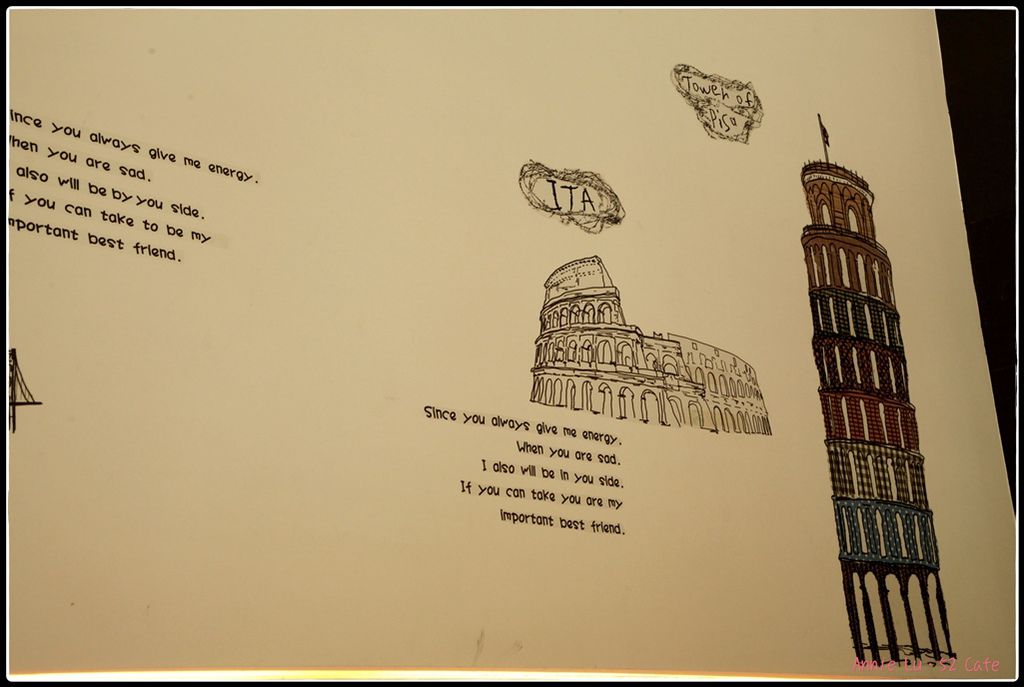 ince you always give me energy.
hen you are sad.
also will be by you side.
f you can take to be my
mportant best friend.
Tower of
Pisa
ITA
Since you always give me energy.
When you are sad.
I also will be in you side.
If you can take you are my
important best friend.
Annie Lu - S2 Cafe